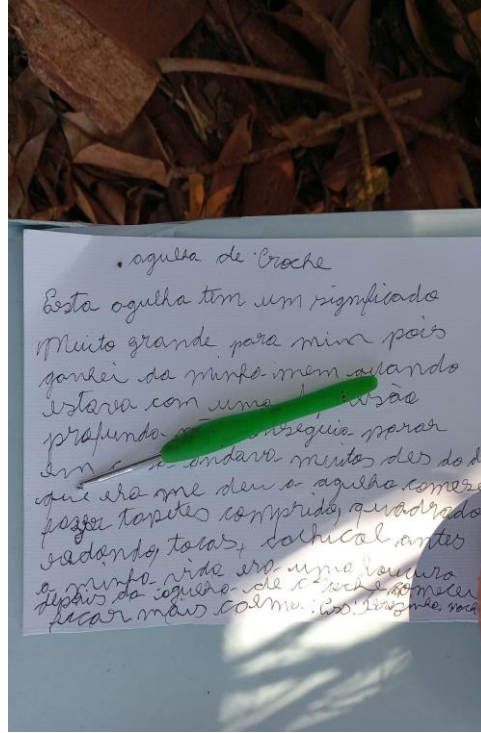 agulha de Croche
Esta agulha tem um significado
Muito grande para mim pois
ganhei da minha mem quando
estava com uma
profunda conseguia parar
em andava muitos des do d
que era me deu a agulha comese
fazer tapites comprido, quadrado
redondo, tocas, antes
a minha vida era uma loucura
depois da agulha de croche comecei
ficar mais calma.